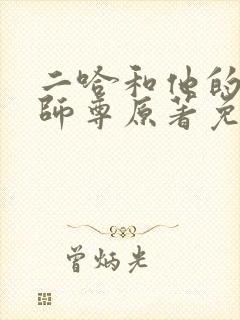 二哈和他的
師尊原著免
曾炳光